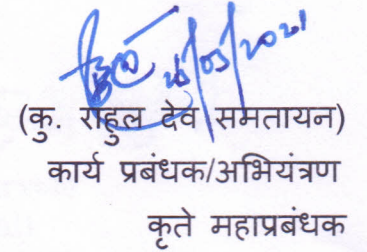 25/05/2021
(कु. राहुल देव समतायन)
कार्य प्रबंधक/अभियंत्रण
कृते महाप्रबंधक